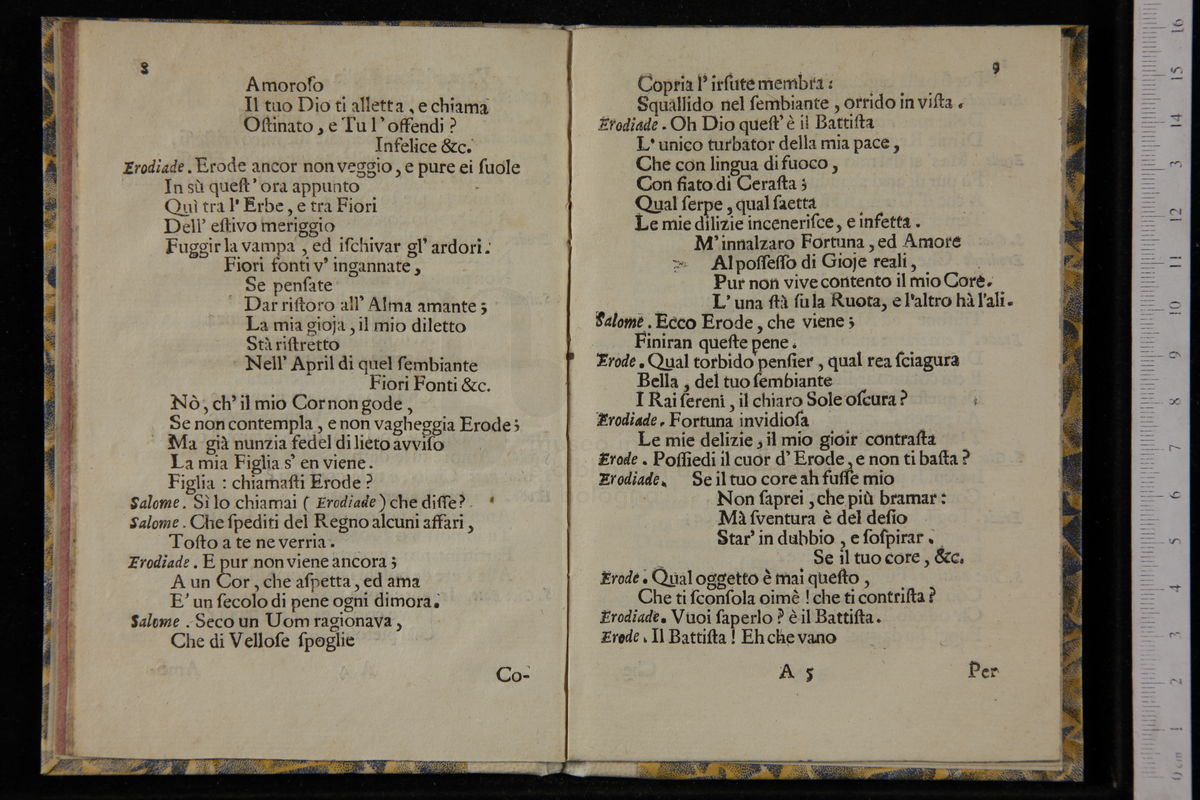 8
Amoroſo
Il tuo Dio ti alletta, e chiama
Oſtinato, e Tu l'offendi?
Infelice &c.
Erodiade. Erode ancor non veggio, e pure ei ſuole
In sù queſt' ora appunto
Quì tra l' Erbe, e tra Fiori
Dell' eſtivo meriggio
Fuggir la vampa, ed iſchivar gl' ardori.
Fiori fonti v' ingannate,
Se penſate
Dar riſtoro all' Alma amante;
La mia gioja, il mio diletto
Stà riſtretto
Nell' April di quel ſembiante
Fiori Fonti &c.
Nò, ch' il mio Cor non gode,
Se non contempla, e non vagheggia Erode;
Ma già nunzia fedel di lieto avviſo
La mia Figlia s' en viene.
Figlia : chiamaſti Erode?
Salome. Sì lo chiamai (Erodiade) che diſſe?
Salome. Che ſpediti del Regno alcuni affari,
Toſto a te ne verria.
Erodiade. E pur non viene ancora;
A un Cor, che aſpetta, ed ama
E' un ſecolo di pene ogni dimora.
Salome. Seco un Uom ragionava,
Che di Velloſe ſpoglie
Co-
9
Copria l' irſute membra:
Squallido nel ſembiante, orrido in viſta.
Erodiade. Oh Dio queſt' è il Battiſta
L' unico turbator della mia pace,
Che con lingua di fuoco,
Con fiato di Ceraſta;
Qual ſerpe, qual ſaetta
Le mie dilizie inceneriſce, e infetta.
M' innalzaro Fortuna, ed Amore
Al poſſeſſo di Gioje reali,
Pur non vive contento il mio Core.
L' una ſtà ſu la Ruota, e l'altro hà l'ali.
Salome. Ecco Erode, che viene;
Finiran queſte pene.
Erode. Qual torbido penſier, qual rea ſciagura
Bella, del tuo ſembiante
I Rai ſereni, il chiaro Sole oſcura?
Erodiade. Fortuna invidioſa
Le mie delizie, il mio gioir contraſta
Erode. Poſſiedi il cuor d' Erode, e non ti baſta?
Erodiade. Se il tuo core ah fuſſe mio
Non ſaprei, che più bramar:
Mà ſventura è del deſio
Star' in dubbio, e ſoſpirar.
Se il tuo core, &c.
Erode. Qual oggetto è mai queſto,
Che ti ſconſola oimè! che ti contriſta?
Erodiade. Vuoi ſaperlo? è il Battiſta.
Erode. Il Battiſta! Eh che vano
A 5
Per